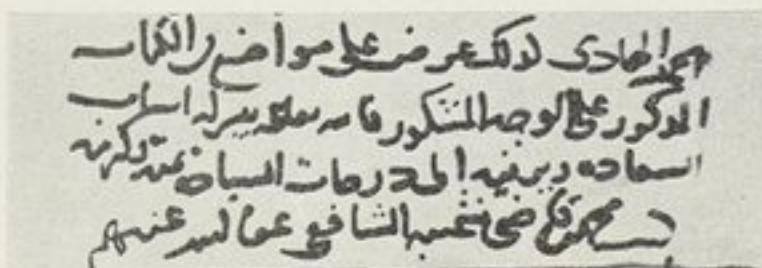 محمد الهادى كذلك عرض على مواضع من الكتاب
المذكور على الوجه المشكور فالله تعالى ييسر له اسباب
السعاده ويرقيه الى درجات السياده بمنه وكرمه
محمد قاضى شهبه الشافعى عفا الله عنهم